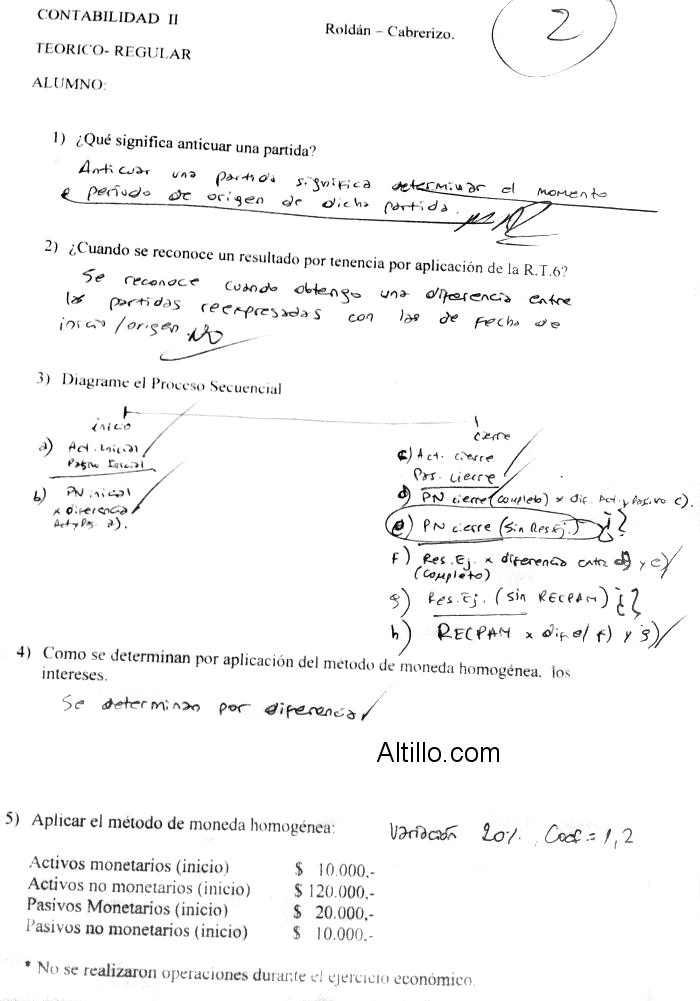 CONTABILIDAD II
Roldán – Cabrerizo.
2
TEORICO- REGULAR
ALUMNO:
1) ¿Qué significa anticuar una partida?
Anticuar una partida significa determinar el momento
e período de origen de dicha partida.
2) ¿Cuando se reconoce un resultado por tenencia por aplicación de la R.T.6?
Se reconoce cuando obtengo una diferencia entre
las partidas reexpresadas con las de fecha de
inicio/origen. NO
3) Diagrame el Proceso Secuencial
inicio
cierre
a) Act. Inicial
Pasivo Inicial
b) PN inicial
x diferencia
Act y Pas. a).
c) Act. cierre
Pas. cierre
d) PN cierre (completo) x dif. Act. y Pasivo c).
e) PN cierre (Sin Res Ej.) ¿?
f) Res. Ej. x diferencia entre d) y e)
(completo)
g) Res. Ej. (sin RECPAM) ¿?
h) RECPAM x dif. e/ f) y g)
4) Como se determinan por aplicación del método de moneda homogénea. los
intereses.
Se determinan por diferencia
Altillo.com
5) Aplicar el método de moneda homogénea:
Variación 20%. Coef = 1,2
Activos monetarios (inicio) $ 10.000.-
Activos no monetarios (inicio) $ 120.000.-
Pasivos Monetarios (inicio) $ 20.000,-
Pasivos no monetarios (inicio) $ 10.000.-
* No se realizaron operaciones durante el ejercicio económico.